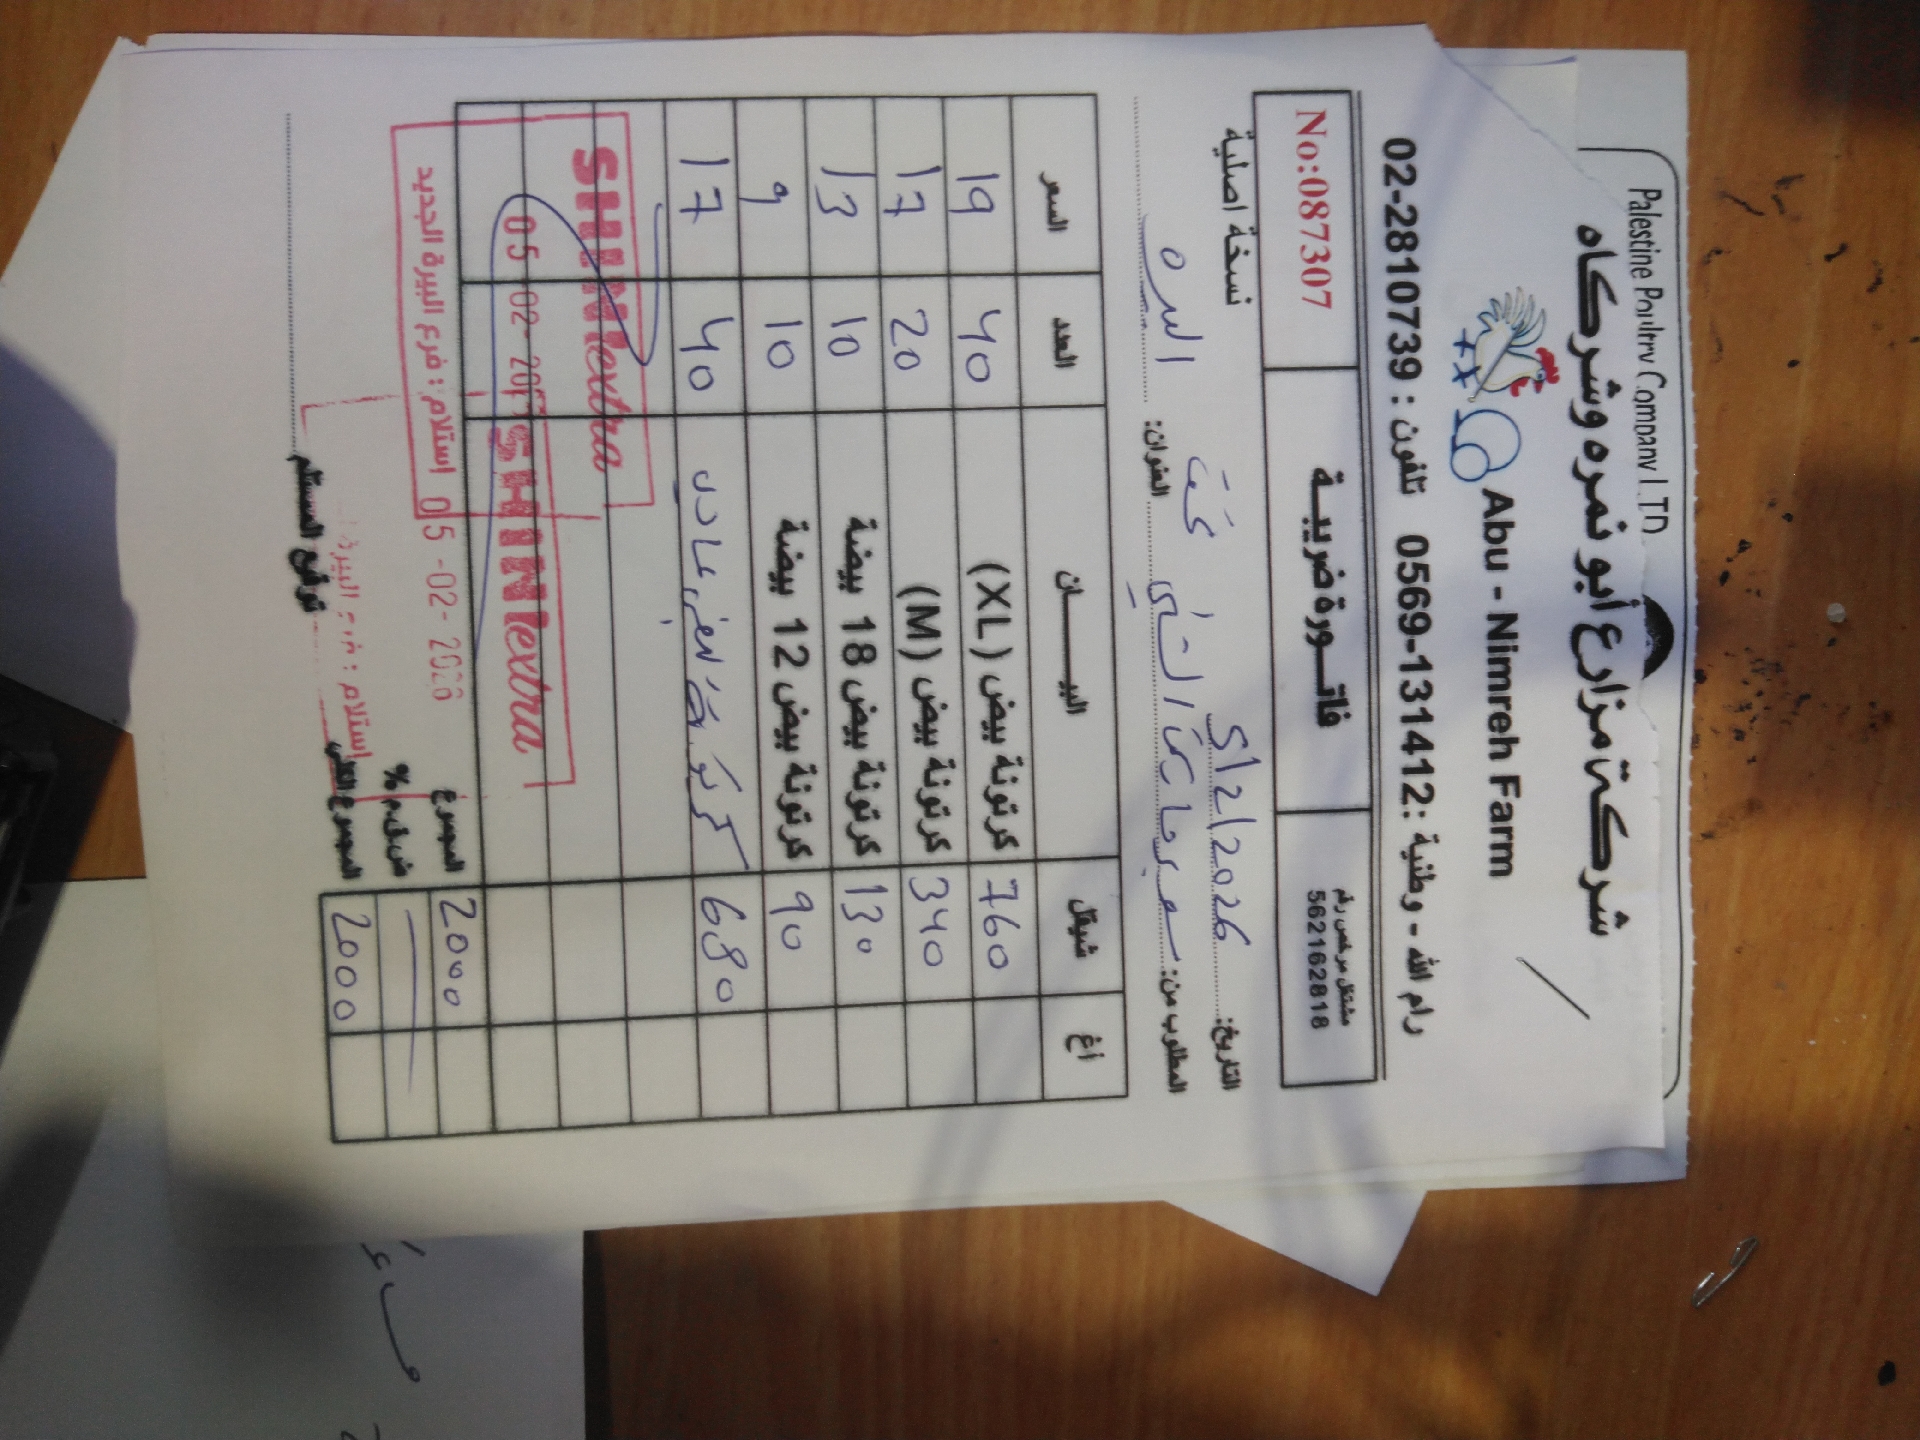 Palestine Poultry Company LTD
شركة مزارع أبو نمره وشركاه
Abu - Nimreh Farm
رام الله - وطنية : 0569-131412 تلفون : 02-2810739
مشتغل مرخص رقم
562162818
فاتورة ضريبية
No:087307
التاريخ: 5/2/2026
نسخة اصلية
المطلوب من:
العنوان: البيره
أغ شيقل البيان العدد السعر
760 كرتونة بيض (XL) 40 19
340 كرتونة بيض (M) 20 17
130 كرتونة بيض 18 بيضة 10 13
90 كرتونة بيض 12 بيضة 10 9
680 كرتونة بيض عادي 40 17
SHINIextra
05-02-20
SHINIextra
استلام : فرع البيرة الجديد
05-02-2026
استلام : فرع البيرة
المجموع 2000
ض.ق.م %
المجموع الكلي 2000
توقيع المستلم